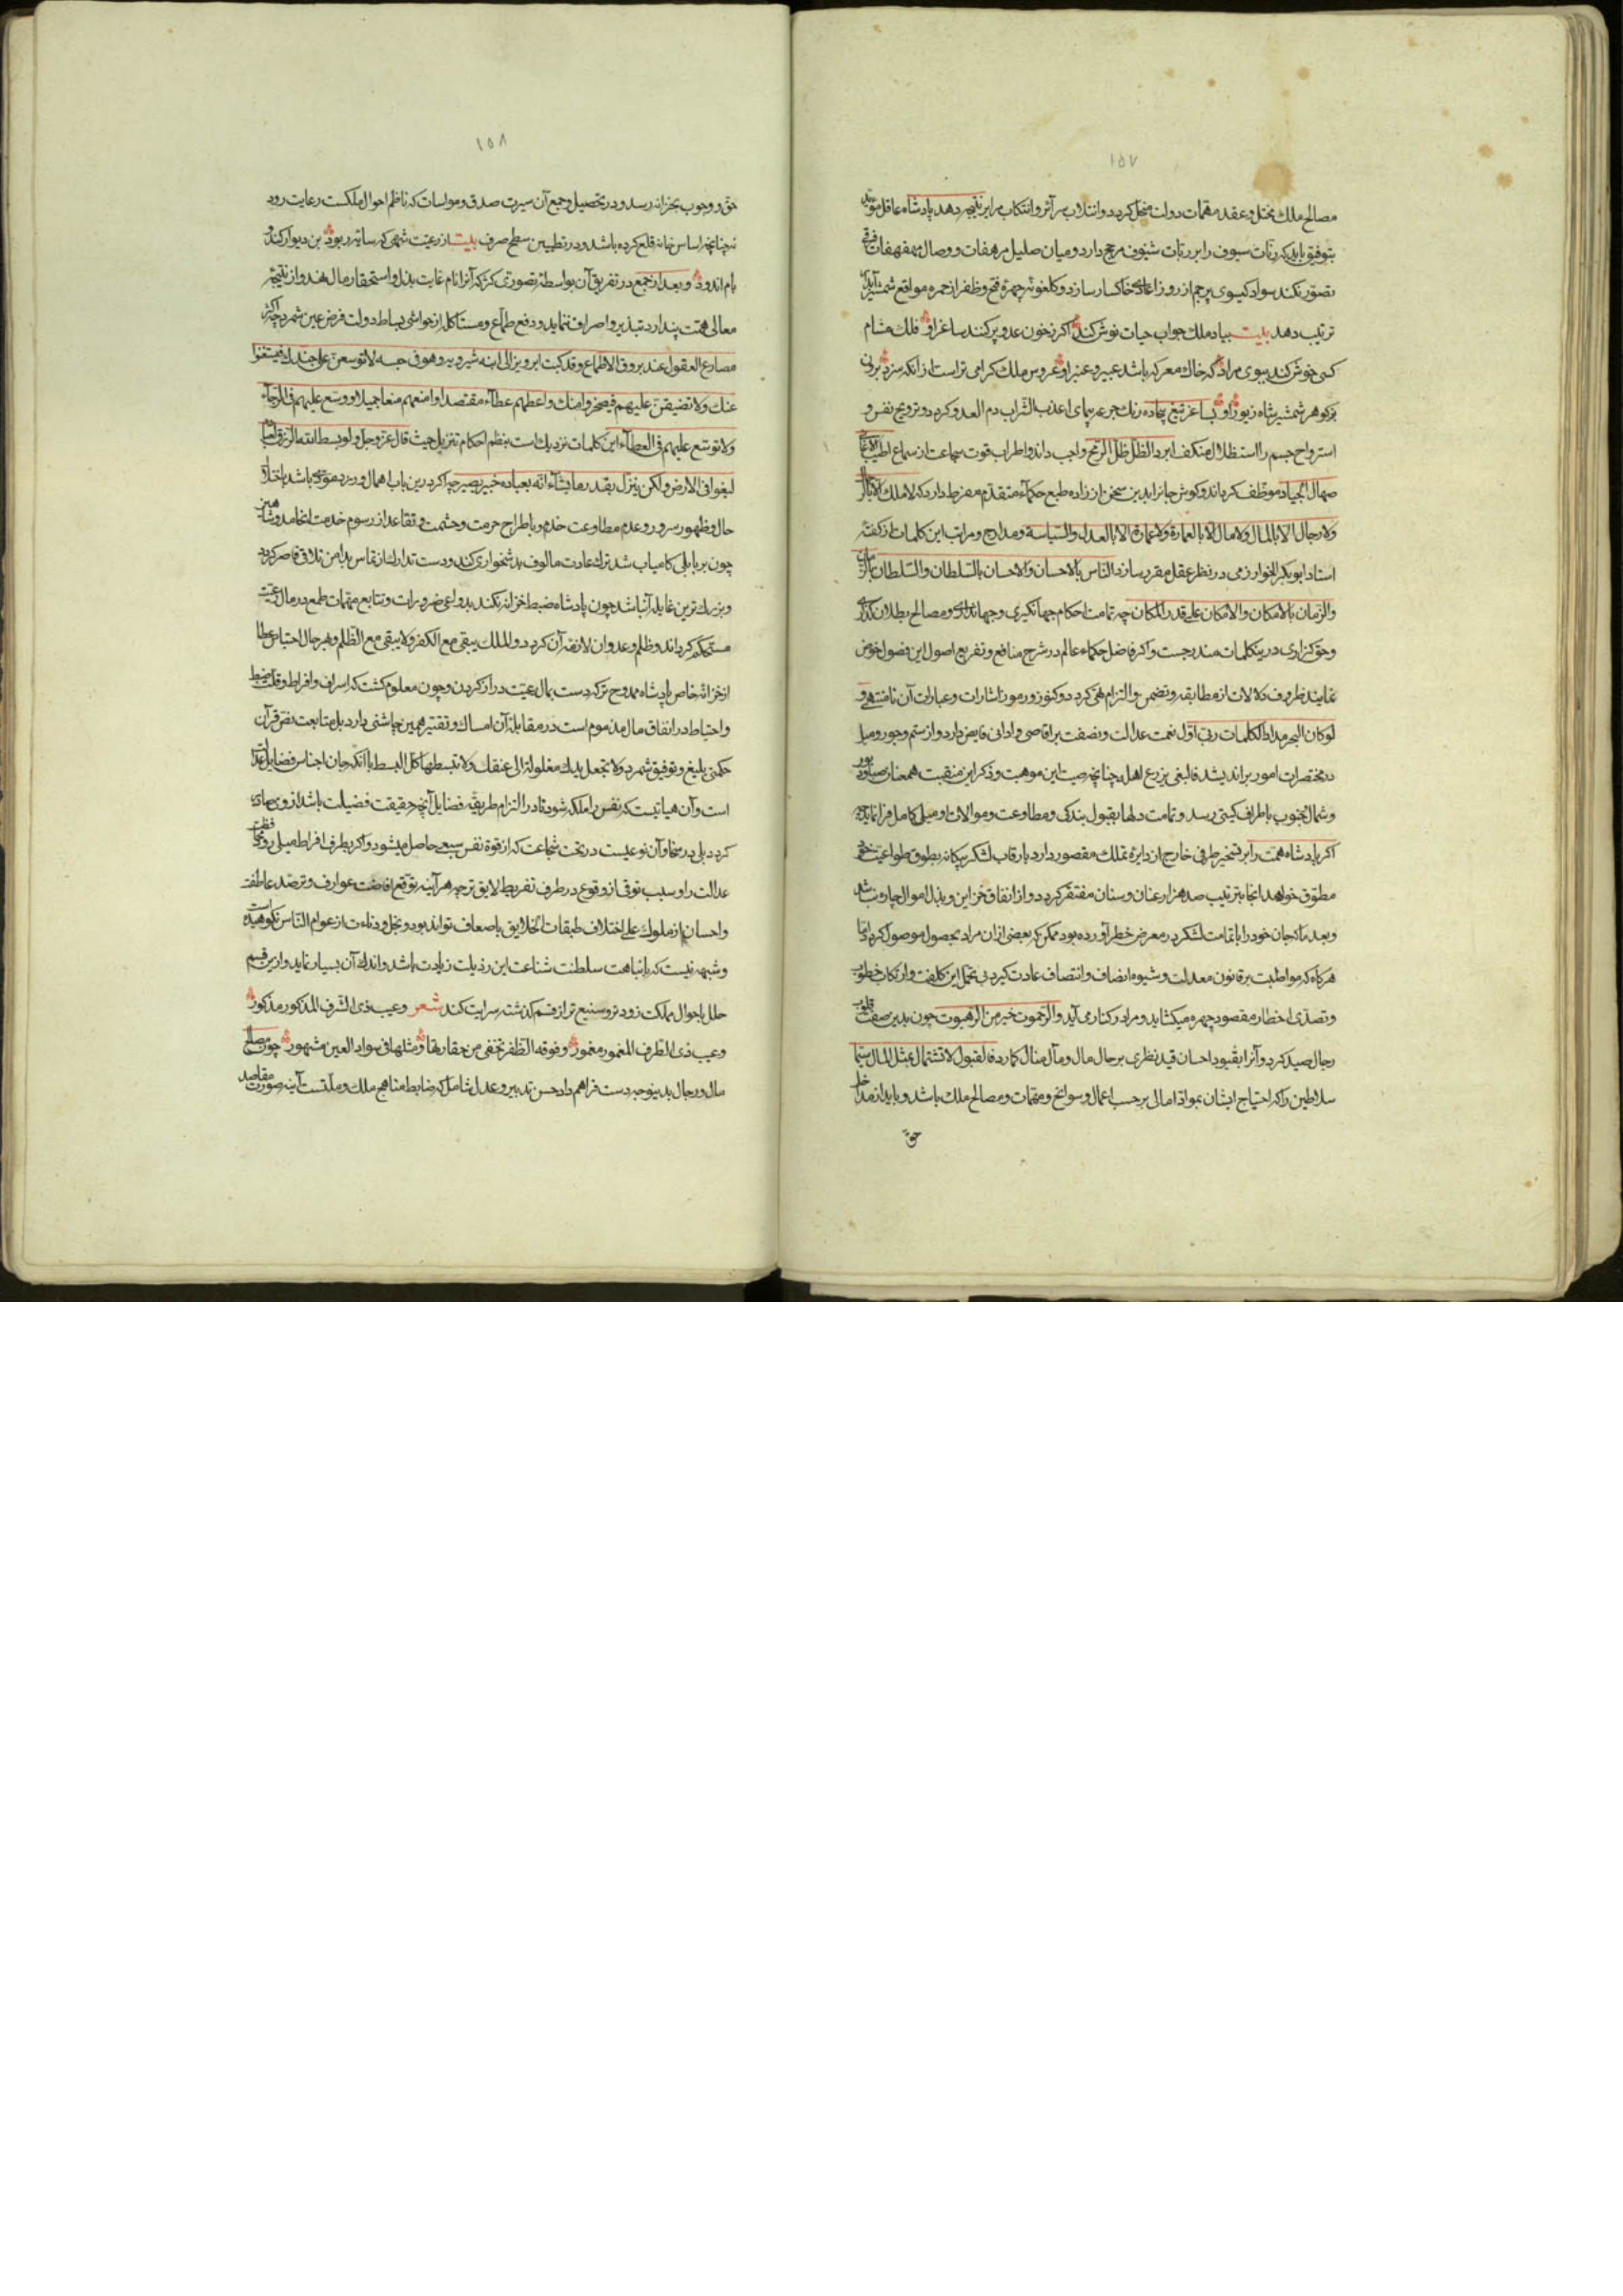 ١٥٧
مصالح ملك مختل وعقد مهمات دولت منحل كردد وانتلاب سرآئر وانتكاب مراير نتيجه دهد پادشاه عاقل مؤيد
بتوفيق بايد كه رنّات سيوف را بر ربّات شنوف مرجح دارد وميان صليل مرهفات ووصال مهفهفات فرقى
تصوّر نكند سواد كيسوى پرچم از روز اعادى خاكسار سازد وكلغونه چهرهٔ فتح وظفر از حمره مواقع شمشير آبدار
ترتيب دهد بيت بياد ملك جواب حيات نوش كند اكر ز خون عدو پر كنند ساغر او فلك مشام
كسى خوش كند ببوى مراد كه خاك معركه باشد عبير وعنبر او عروس ملك كرامى تر است از انكه سزد برونى
بجز كوهر شمشير شاه زيور او بساغر تيغ بيجاده رنك جرعه پيماى اعذب الشراب دم العدو كردد وترويح نفس و
استرواح جسم را استظلال منكنف ابرد الظل ظل الرمح واجب داند واطراب قوت سماعت از سماع اطيب الاغانى
صهال الجياد موظف كرداند وكوش جانرا بدين سخن از زاده طبع حكمآء متقدّم مقرط دارد كه لا ملك الا بالرجال
ولا رجال الا بالمال ولا مال الا بالعمارة ولا عمارة الا بالعدل والسياسة ومدارج ومراتب اين كلمات از كفتهٔ
استاد ابوبكر الخوارزمى در نظر عقل مقرر سازد الناس بالاحسان والاحسان بالسلطان والسلطان بالزمان
والزمان بالامكان والامكان على قدر المكان چه تمامت احكام جهانكيرى وجهاندارى ومصالح بطلان كذارى
وحق كزارى درين كلمات مندرجست واكر فاضل حكماء عالم در شرح منافع وتفريع اصول اين فصول خوض
نمايند ظروف دلالات از مطابقه وتضمن والتزام تهى كردد وكنوز ورموز اشارات وعبارات آن نامنتهى و
لو كان البحر مدادا لكلمات ربى اوّل نعمت عدالت ونصفت بر اقاصى وادانى فايض دارد واز ستم وجور وميل
در مختصرات امور بر انديشد فالبغى يزرع اهله چنانچه صيت اين موهبت وذكر اين منقبت همعنان صبا ودبور
وشمال وجنوب باطراف كيتى رسد وتمامت دلها بقبول بندكى ومطاوعت وموالات او ميلى كامل فرا نمايد چه
اكر پادشاه همّت را بر تسخير طرفى خارج از دايرهٔ تملك مقصور دارد يا رقاب لشكر بيكانه بطوق طواعيت خود
مطوّق خواهد انجا بترتيب صد هزار عنان وسنان مفتقر كردد واز انفاق خزاين وبذل اموال چاره نباشد
وبعد ما كه جان خود را با تمامت لشكر در معرض خطر آورده بود ممكن كه بعضى از ان مراد بحصول موصول كردد اما
هركاه كه مواظبت بر قانون معدلت وشيوه انصاف وانتصاف عادت كيرد بى تحمل اين كلفت وارتكاب خطوب
وتصدّى اخطار مقصود چهره ميكشايد ومراد در كنار مى آيد والرحموت خير من الرهبوت چون بدين صفت قلوب
رجال صيد كرد وآنرا بقيود احسان قيد نظرى بر حال مال ومآل منال كمارد فالقبول لا تشتمال بمثل المال سيّما
سلاطين را كه احتياج ايشان بموادّ امالى بر حسب اعمال وسوانح ومهمّات ومصالح ملك باشد وبايد از مداخل
حق
١٥٨
حق ووجوب بخزانه رسد ودر تحصيل وجمع آن سيرت صدق ومواسات كه ناظم احوال ملكست رعايت رود
نه چنانچه اساس خانه قلع كرده باشد ودر تطيين سطح صرف بيت از رعيت شهى كه مايه ربود بن ديوار كند و
بام اندود وبعد از جمع در تفريق آن بواسطه تصورى كژ كه آنرا نام غايت بذل واستحقار مال نهد واز نتيجه
معالى همّت پندارد تبذير واصراف ننمايد ودفع طمّاع ومستاكل از حواشى بساط دولت فرض عين شمرد چه اكثر
مصارع العقول عند بروق الاطماع وقد كتب ابرويز الى ابنه شيرويه وهو فى حبسه لا توسعن على جندك فيستغنوا
عنك ولا تضيقن عليهم فيضجروا منك واعطهم عطآء مقتصدا وامنعهم منعا جميلا ووسّع عليهم فى الرجآء
ولا توسّع عليهم فى العطآء اين كلمات نزديك است بنظم احكام تنزيل حيث قال عز وجل ولو بسط الله الرزق لعباده
لبغوا فى الارض ولكن ينزل بقدر ما يشآء انه بعباده خبير بصير چه اكر درين باب اهمال ورزد مؤدى باشد باختلال
حال وظهور سرور وعدم مطاوعت خدم وباطراح حرمت وحشمت وتقاعد از رسوم خدمت انجامد وشاهين
چون بر بابلى كامياب شد ترك عادت مالوف بدشخوارى كند ودست تدارك از تماس بدامن تلافى قاصر كردد
وبزرك ترين غايله آنباشد چون پادشاه ضبط خزانه نكند بدواعى ضرورات وتتابع مهمّات طمع در مال رعيّت
مستحكم كرداند وظلم وعدوان لازمهٔ آن كردد والملك يبقى مع الكفر ولا يبقى مع الظلم وبهر حال احتباس عطا
از خزانهٔ خاص پادشاه ممدوح تر كه دست بمال رعيّت دراز كردن وچون معلوم كشت كه اسراف وافراط وقلّت ضبط
واحتياط در انفاق مال مذموم است در مقابلهٔ آن امساك وتقتير همين چاشنى دارد بل متابعت نصّ قرآن
حكمى بليغ وتوفيق شمرد ولا تجعل يدك مغلولة الى عنقك ولا تبسطها كل البسط با آنكه جان اجناس فضايل عدالت
است وآن هيأتيست كه نفس را ملكه شود تا در التزام طريقهٔ فضايل آنچه حقيقت فضيلت باشد ازو
كردد بلى در سخا وآن نوعيست در تحت شجاعت كه از قوة نفس سبعى حاصل ميشود واكر بطرف افراط ميلى رود
عدالت را وسبب توقى از وقوع در طرف تفريط لايق تر چه هرآينه توقع افاضت عوارف وترصّد عاطفت
واحسان از ملوك على اختلاف طبقات الخلايق باضعاف تواند بود وبخل ودناءت از عوام الناس نكوهيده است
وشبهه نيست كه با نباهت سلطنت شناعت اين رذيلت زيادت باشد واندك آن بسيار نمايد وازين قسم
خلل باحوال مملكت زودتر وشنيع تر از قسم كذشته سرايت كند شعر وعيب ذى الشرف المذكور مذكور
وعيب ذى الطرف المغمور مغمور وفوقه الظفر تخفى من حقارتها ومثلها فى سواد العين مشهور چون مصالح
مال ورجال بدينوجه دست فراهم داد حسن تدبير وعدل شامل كه ضابط مناهج ملك وملتست آينه صورت مقاصد